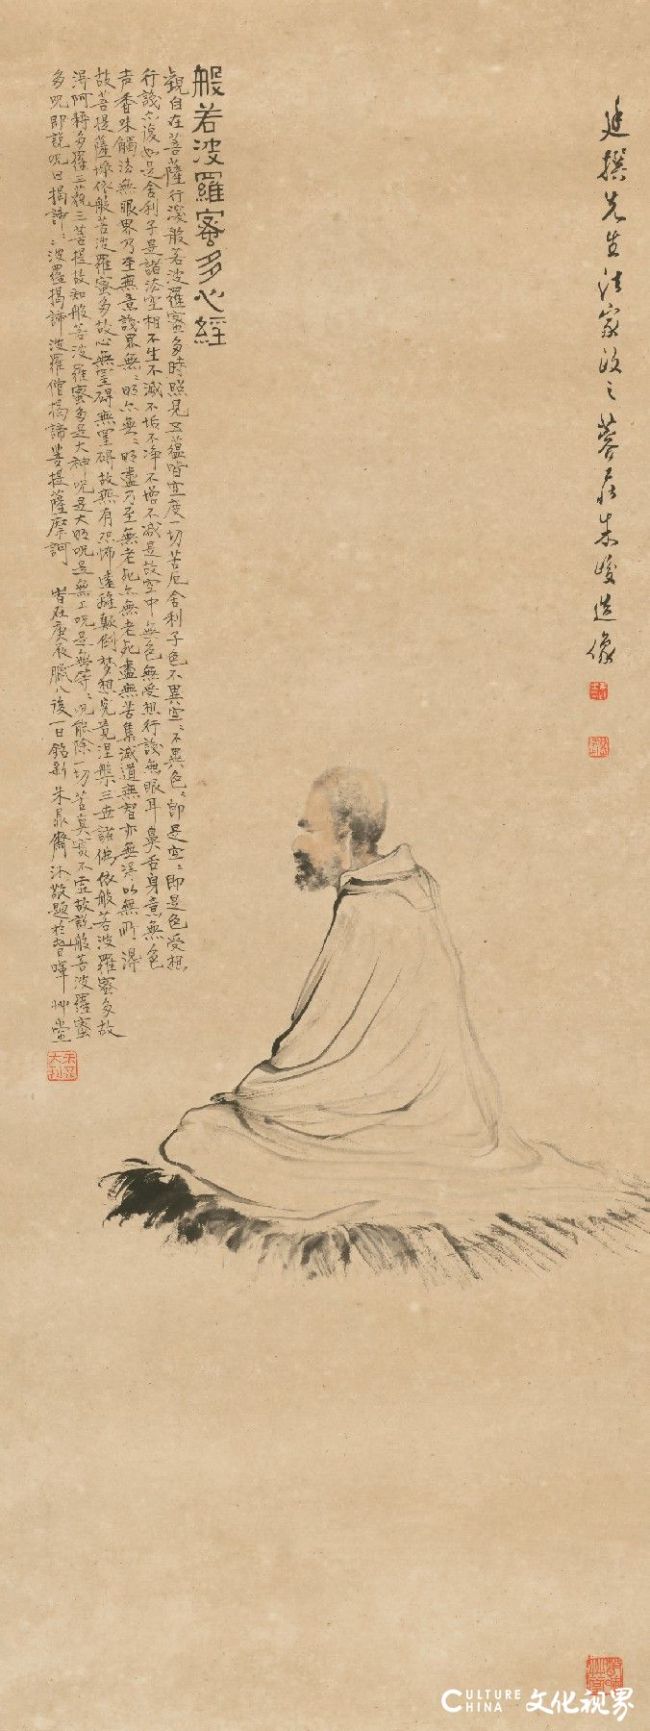 先生法家政之蓉庄朱峻造像
般若波羅蜜多心經
觀自在菩薩行深般若波羅蜜多時照見五蘊皆空度一切苦厄舍利子色不異空〻不異色〻即是空〻即是色受想
行識亦復如是舍利子是諸法空相不生不滅不垢不淨不增不減是故空中無色無受想行識無眼耳鼻舌身意無色
声香味觸法無眼界乃至無意識界無〻明亦無〻明盡乃至無老死亦無老死盡無苦集滅道無智亦無得以無所得
故菩提薩埵依般若波羅蜜多故心無罣碍無罣碍故無有恐怖遠離顛倒夢想究竟涅槃三世諸佛依般若波羅蜜多故
得阿耨多羅三藐三菩提故知般若波羅蜜多是大神呪是大明呪是無上呪是無等〻呪能除一切苦真實不虛故說般若波羅蜜
多呪即說呪曰揭諦〻波羅揭諦波羅僧揭諦菩提薩摩訶 時在庚辰臘八後一日 朱 沐敬題於 暉艸堂
CULTURE CHINA 文化视界